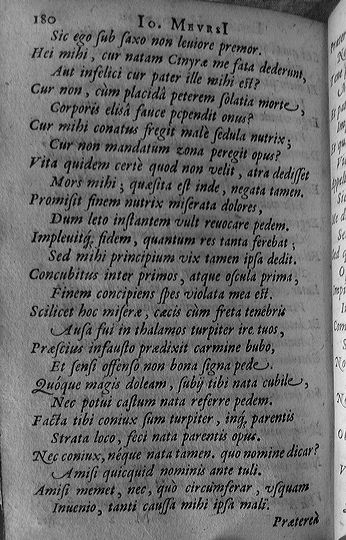 180 IO. MEVRSI
Sic ego sub saxo non leuiore premor.
Hei mihi, cur natam Cinyræ me fata dederunt,
Aut infelici cur pater ille mihi est?
Cur non, cùm placidâ peterem solatia morte,
Corporis elisâ fauce pependit onus?
Cur mihi conatus fregit malè sedula nutrix;
Cur non mandatum zona peregit opus?
Vita quidem certè quod non velit, atra dedisset
Mors mihi; quæsita est inde, negata tamen.
Promisit finem nutrix miserata dolores,
Dum leto instantem vult reuocare pedem.
Impleuitq́; fidem, quantum res tanta ferebat;
Sed mihi principium vix tamen ipsa dedit.
Concubitus inter primos, atque oscula prima,
Finem concipiens spes violata mea est.
Scilicet hoc miseræ, cæcis cùm freta tenebris
Ausa fui in thalamos turpiter ire tuos,
Præscius infausto prædixit carmine bubo,
Et sensi offenso non bona signa pede.
Quóque magis doleam, subij tibi nata cubile,
Nec potui castum nata referre pedem.
Facta tibi coniux sum turpiter, inq́; parentis
Strata loco, feci nata parentis opus.
Nec coniux, neque nata tamen. quo nomine dicar?
Amisi quicquid nominis ante tuli.
Amisi memet, nec, quò circumferar, vsquam
Inuenio, tanti caussa mihi ipsa mali.
Præterea